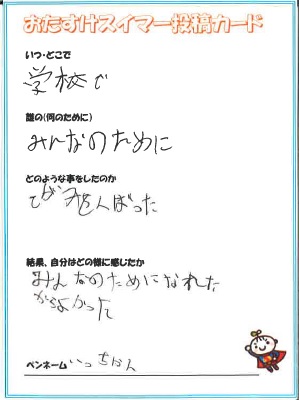 おたすけスイマー投稿カード
いつ・どこで
学校で
誰の(何のために)
みんなのために
どのような事をしたのか
んばった
結果、自分はどの様に感じたか
みんなのためになれた
からよかった
ペンネーム いっちゃん